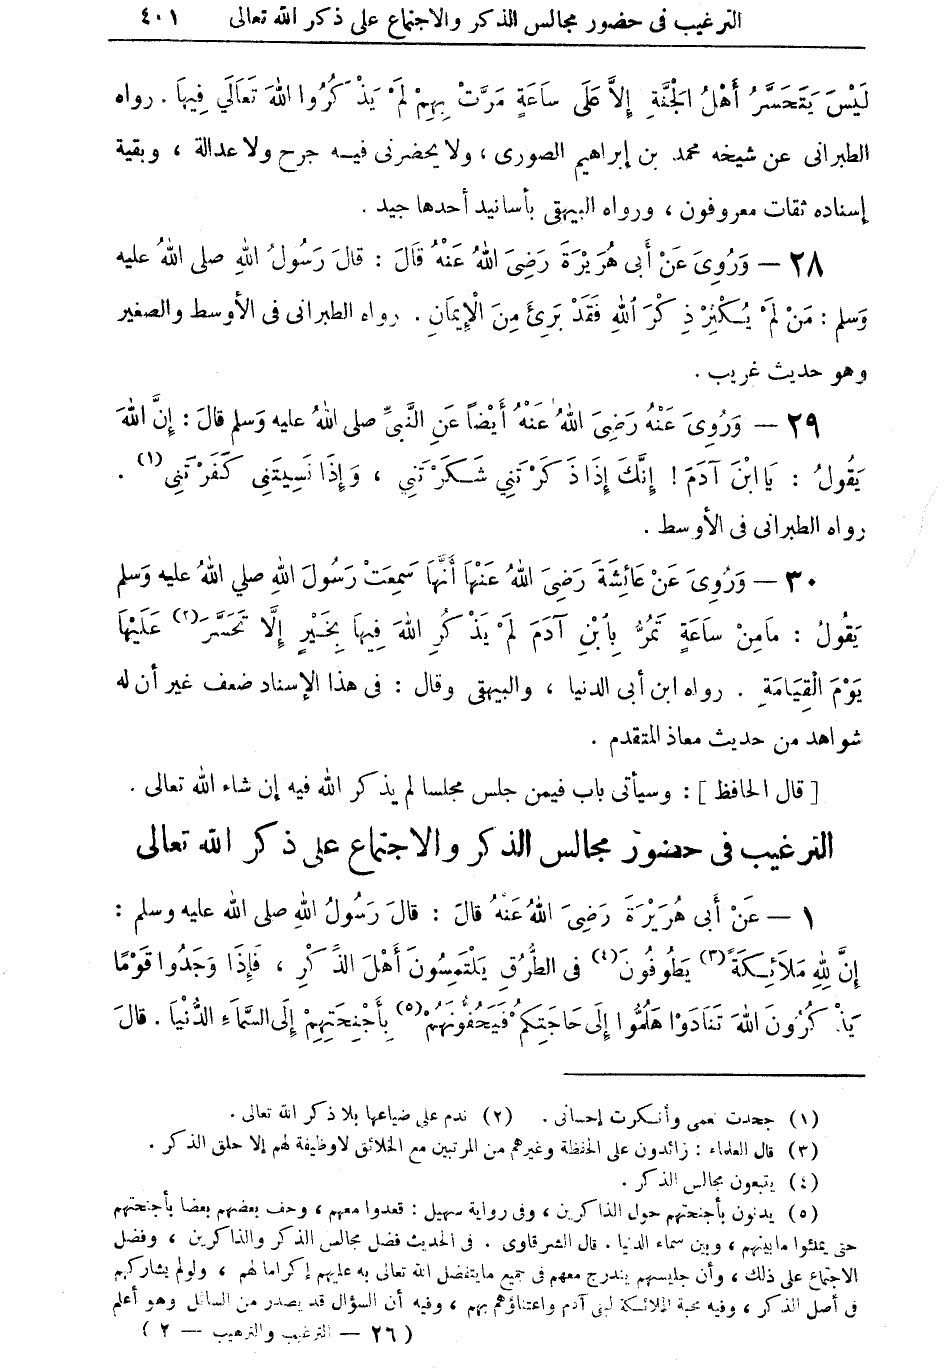 الترغيب فى حضور مجالس الذكر والاجتماع على ذكر الله تعالى ٤٠١
لَيْسَ يَتَحَسَّرُ أَهْلُ الجَنَّةِ إِلاَّ عَلَى سَاعَةٍ مَرَّتْ بِهِمْ لَمْ يَذْكُرُوا اللهَ تَعَالَي فِيهَا . رواه
الطبرانى عن شيخه محمد بن إبراهيم الصورى ، ولا يحضرنى فيه جرح ولا عدالة ، وبقية
إسناده ثقات معروفون ، ورواه البيهقى بأسانيد أحدها جيد .
٢٨ — وَرُوِىَ عَنْ أَبى هُرَيْرَةَ رَضِىَ اللهُ عَنْهُ قَالَ : قالَ رَسُولُ اللهِ صلى اللهُ عليه
وَسلم : مَنْ لَمْ يُكْثِرْ ذِكْرَ اللهِ فَقَدْ بَرِئَ مِنَ الْإِيمَانِ . رواه الطبرانى فى الأوسط والصغير
وهو حديث غريب .
٢٩ — وَرُوِىَ عَنْهُ رَضِىَ اللهُ عَنْهُ أَيْضاً عَنِ النَّبىِّ صلى اللهُ عليه وَسلم قالَ : إِنَّ اللهَ
يَقُولُ : يَا ابْنَ آدَمَ ! إِنَّكَ إِذَا ذَكَرْتَنِي شَكَرْتَنِي ، وَإِذَا نَسِيتَنِى كَفَرْتَنِي (١) .
رواه الطبرانى فى الأوسط .
٣٠ — وَرُوِىَ عَنْ عَائِشَةَ رَضِىَ اللهُ عَنْهَا أَنَّهَا سَمِعَتْ رَسُولَ اللهِ صلي اللهُ عليه وَسلم
يَقُولُ : مَامِنْ سَاعَةٍ تَمُرُّ بِابْنِ آدَمَ لَمْ يَذْكُرِ اللهَ فِيهَا بِخَيْرٍ إِلَّا تَحَسَّرَ (٢) عَلَيْهَا
يَوْمَ الْقِيَامَةِ . رواه ابن أبى الدنيا ، والبيهقى وقال : فى هذا الإسناد ضعف غير أن له
شواهد من حديث معاذ المتقدم .
[ قال الحافظ ] : وسيأتى باب فيمن جلس مجلسا لم يذكر الله فيه إن شاء الله تعالى .
الترغيب فى حضور مجالس الذكر والاجتماع على ذكر الله تعالى
١ — عَنْ أَبى هُرَيْرَةَ رَضِىَ اللهُ عَنْهُ قالَ : قالَ رَسُولُ اللهِ صلى الله عليه وسلم :
إِنَّ لِلهِ مَلَائِكَةً (٣) يَطُوفُونَ (٤) فى الطُّرُقِ يَلْتَمِسُونَ أَهْلَ الذِّكْرِ ، فَإِذَا وَجَدُوا قَوْمًا
يَذْكُرُونَ اللهَ تَنَادَوْا هَلُمُّوا إِلَى حَاجَتِكُمْ فَيَحُفُّونَهُمْ (٥) بِأَجْنِحَتِهِمْ إِلَى السَّمَاءِ الدُّنْيَا . قالَ
(١) جحدت نعمى وأنكرت إحسانى . (٢) ندم على ضياعها بلا ذكر الله تعالى .
(٣) قال العلماء : زائدون على الحفظة وغيرهم من المرتبين مع الخلائق لاوظيفة لهم إلا حلق الذكر .
(٤) يتبعون مجالس الذكر .
(٥) يدنون بأجنحتهم حول الذاكرين ، وفى رواية سهيل : قعدوا معهم ، وحف بعضهم بعضا بأجنحتهم
حتى يملئوا مابينهم ، وبين سماء الدنيا . قال الشرقاوى . فى الحديث فضل مجالس الذكر والذاكرين ، وفضل
الاجتماع على ذلك ، وأن جليسهم يندرج معهم فى جميع مايتفضل الله تعالى به عليهم إكراما لهم ، ولولم يشاركهم
فى أصل الذكر ، وفيه محبة الملائكة لبنى آدم واعتناؤهم بهم ، وفيه أن السؤال قد يصدر من السائل وهو أعلم
( ٢٦ — الترغيب والترهيب — ٢ )